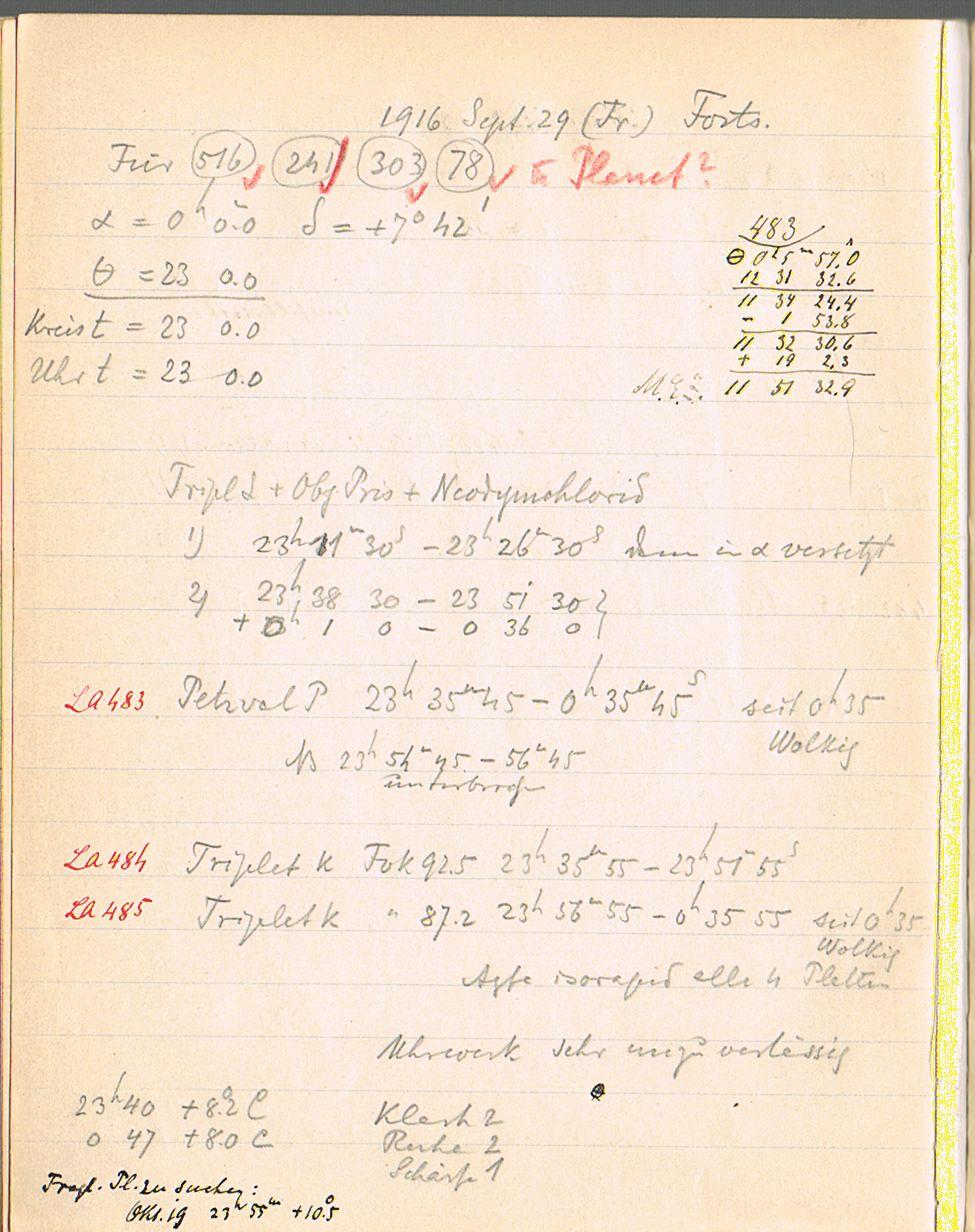 1916 Sept. 29 (Fr.) Forts.
Für 516 241 303 78 Planet?
α = 0ʰ 0ᵐ.0 δ = +7° 42'
θ = 23 0.0
Kreis t = 23 0.0
Uhr t = 23 0.0
483
θ 0ʰ 5ᵐ 57.0
12 31 32.6
11 34 24.4
- 1 53.8
11 32 30.6
+ 19 2.3
M.E.Z. 11 51 32.9
Tripl L + Obj Pris + Neodymchlorid
1) 23ʰ 11ᵐ 30ˢ - 23ʰ 26ᵐ 30ˢ dann in α versetzt
2) 23ʰ 38 30 - 23 51 30 }
+ 0ʰ 1 0 - 0 36 0 }
LA 483 Petzval P 23ʰ 35ᵐ 45 - 0ʰ 35ᵐ 45ˢ seit 0ʰ 35
Wolkig
NB 23ʰ 54ᵐ 45 - 56ᵐ 45
unterbroch
LA 484 Triplet K Fok 92.5 23ʰ 35ᵐ 55 - 23ʰ 51ᵐ 55ˢ
LA 485 Triplet K " 87.2 23ʰ 56ᵐ 55 - 0ʰ 35 55 seit 0ʰ 35
Wolkig
Agfa isorapid alle 4 Platten
Uhrwerk sehr unzuverlässig
23ʰ 40 +8.2 C Klarh 2
0 47 +8.0 C Ruhe 2
Schärfe 1
Fragl. Pl. zu suchen:
Okt. 19 23ʰ 55ᵐ +10°.5